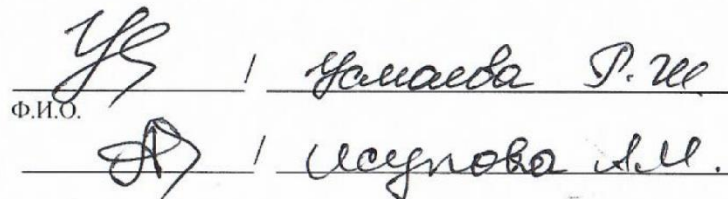 / Усмаева Р. Ж
Ф.И.О.
/ Исупова А.М.